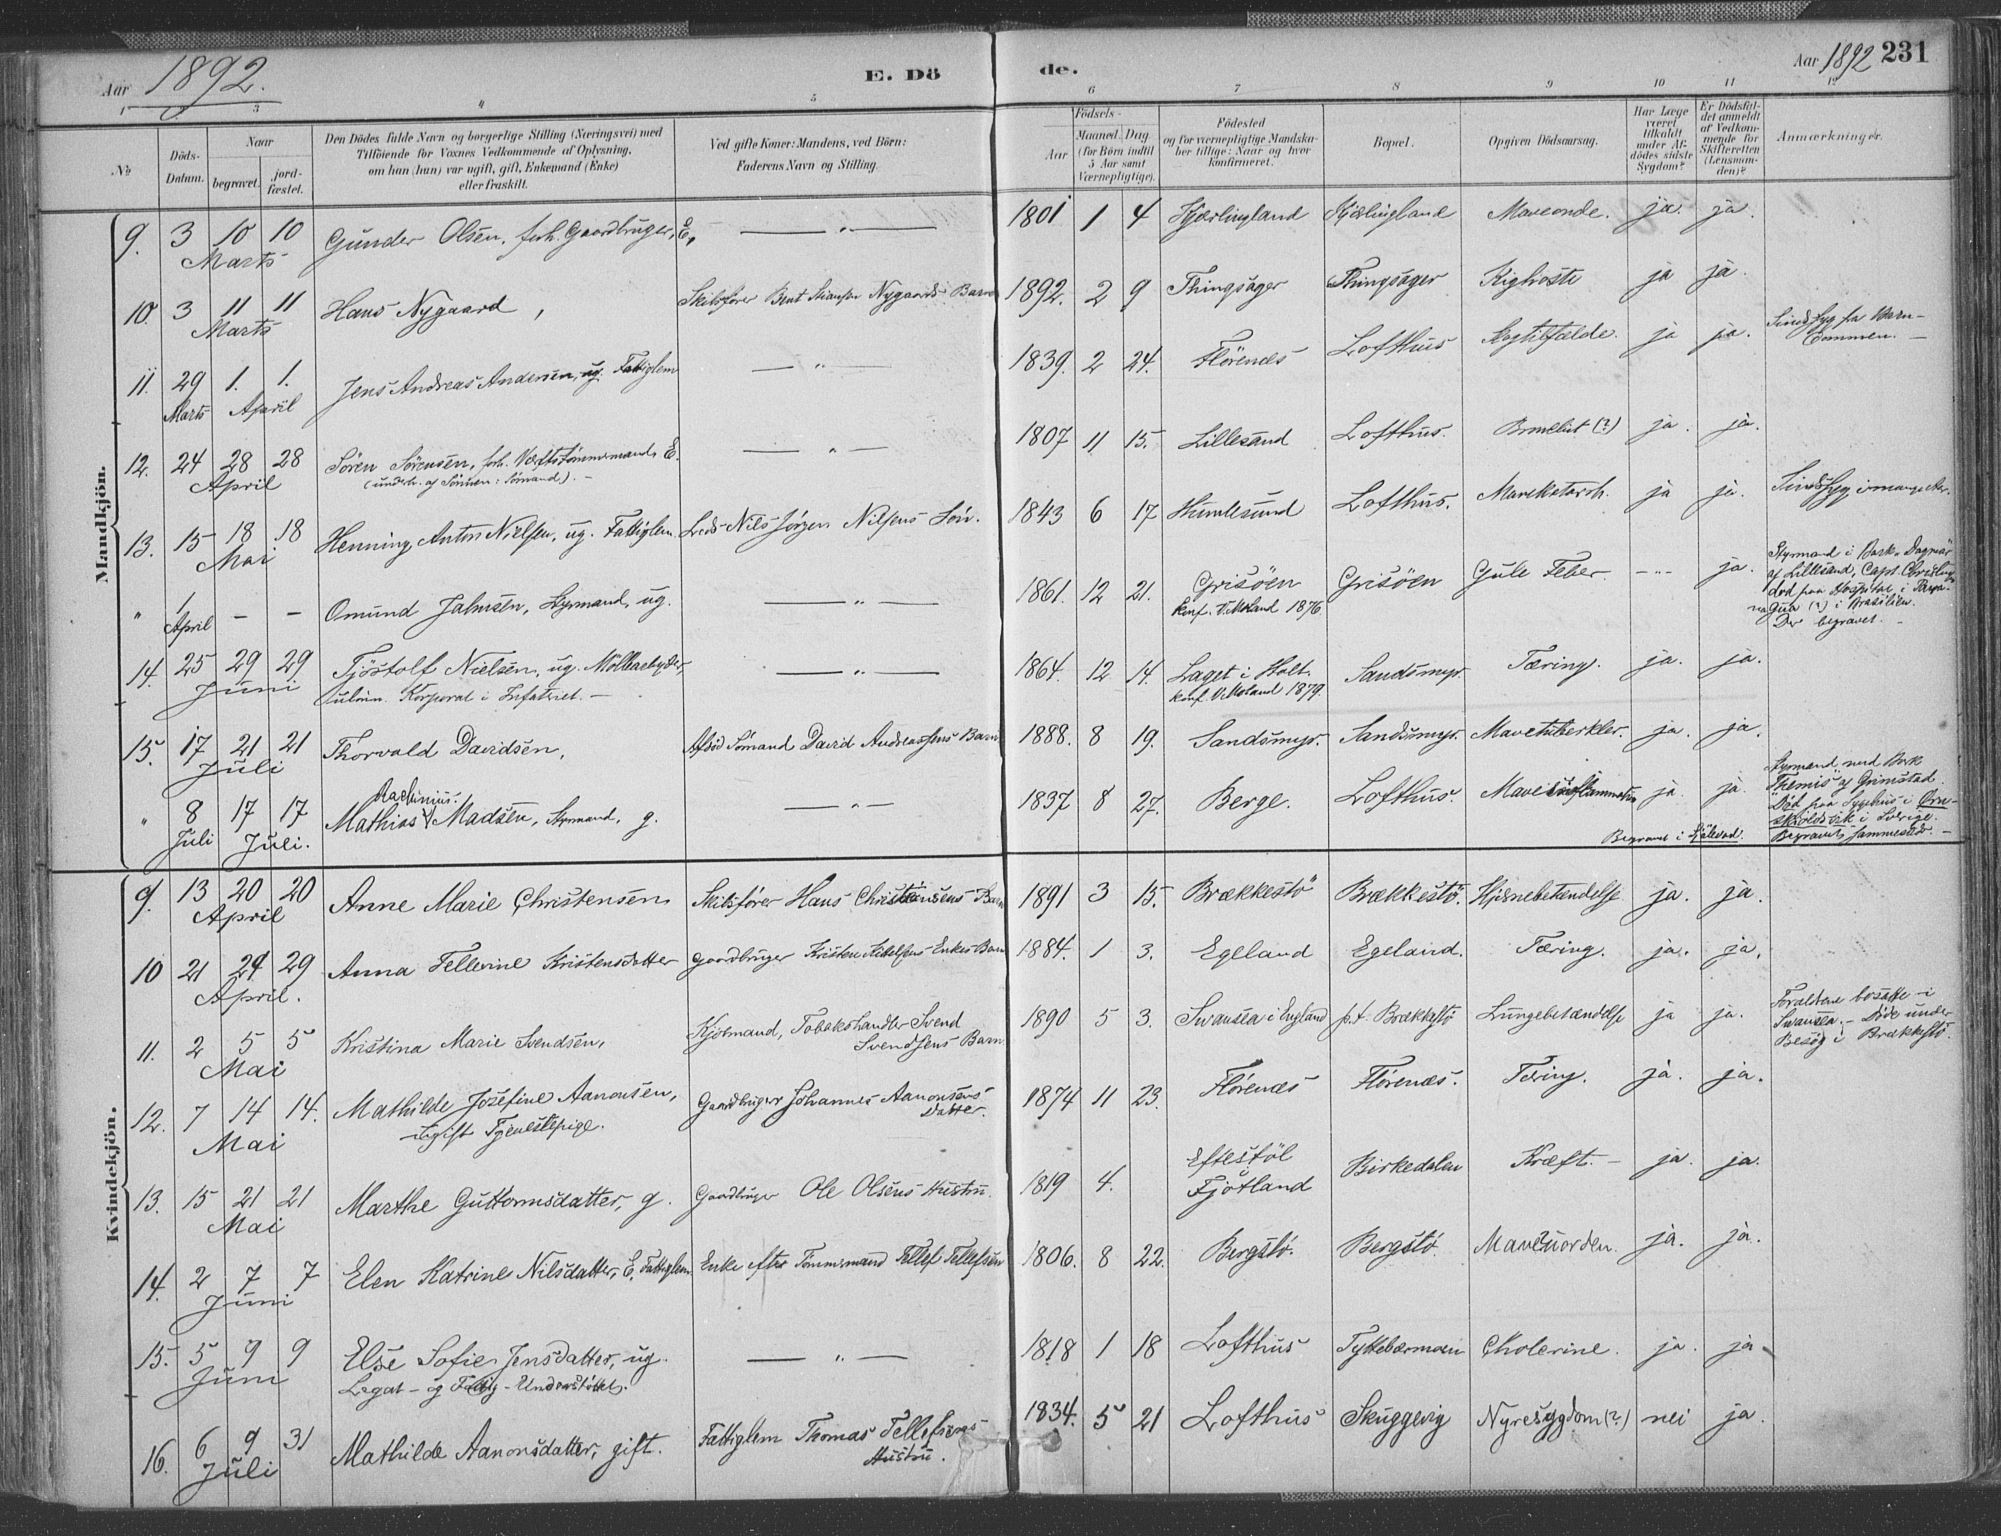 Aar 1892. E. Dö de. Aar 1892 231
1 2 3 4 5 6 7 8 9 10 11 12
№ Döds-Datum. Naar begravet. jordfæstet. Den Dödes fulde Navn og borgerlige Stilling (Næringsvei) med Tilföiende for Voxnes Vedkommende af Oplysning, om han (hun) var ugift, gift, Enkemand (Enke) eller fraskilt. Ved gifte Koner: Mandens, ved Börn: Faderens Navn og Stilling. Födsels- Aar Maaned Dag (for Börn indtil 5 Aar samt Værnepligtige). Födested og for værnepligtige Mandskaber tillige: Naar og hvor konfirmeret. Bopæl. Opgiven Dödsaarsag. Har Læge været tilkaldt under Afdödes sidste Sygdom? Er Dödsfaldet anmeldt af Vedkommende for Skifteretten (Lensmanden)? Anmærkninger.
Mandkjön.
9. 3 10 10 Marts Gunder Olsen, forh. Gaardbruger, E, — „ — 1801 1 4 Kjærlingland Kjælingland Maveonde. ja. ja.
10. 3 11 11 Marts Hans Nygaard, Skibsfører Bent Nygaards Barn 1892. 2 9 Thingsager Thingsager Kighoste ja ja.
11. 29 Marts 1. 1. April Jens Andreas Andersen, ug. Fattiglem — „ — 1839. 2 24. Flörenæs Lofthus Slagtilfælde. ja ja. Sindssyg fra Barndommen. —
12. 24 28 28 April Sören Sörensen, forh. Værftstømmermand, E. — „ — 1807 11 15. Lillesand Lofthus. (?) ja. ja.
(underh. af Sönnen: Sömand). —
13. 15 18 18 Mai Henning Anton Nielsen, ug. Fattiglem. Lods Nils Jörgen Nilsens Sön. 1843 6 17 Humlesund Lofthus. Mavekatarrh. ja ja. Sindssyg i mange Aar.
„ 1 April — — Omund Jahnsen, Styrmand, ug. — „ — 1861. 12 21. Grisöen Grisöen Gule Feber. — „ — ja. Styrmand i Bark „Dagmar"
konf. V. Moland 1876 af Lillesand, Capt.
död paa Hospital i Paranagua (?) i Brasilien.
Der begravet. —
14. 25 29 29 Juni Tjöstolf Nielsen, ug. Möllearbeider, — „ — 1864. 12 14. Laget i Holt. Sandsmyr. Tæring. ja. ja.
Korporal i Infateriet. — konf. V. Moland 1879.
15. 17 21 21 Juli Thorvald Davidsen, Afdöd Sömand David Andreassens Barn 1888. 8 19. Sandsmyr. Sandsmyr. Mavetuberkler. ja. ja.
„ 8 Juli 17 17 Juli. Mathias Madsen, Styrmand, g. — „ — 1837 8 27. Berge. Lofthus. ja. ja. Styrmand med Bark
„Themis" af Grimstad.
Död paa Sygehus i Örnsköldsvik i Sverige.
Begravet i Själevad. Begravet sammesteds. —
Kvindekjön.
9. 13 20 20 April Anne Marie Christensen Skibsfører Hans Christensens Barn 1891 3 15. Brækkestö Brækkestö. Hjernebetændelse ja. ja.
10 21 29 29 April. Anna Tellerine Kristensdatter Gaardbruger Kristen Enkes Barn 1884. 1 3. Egeland Egeland. Tæring. ja. ja.
11. 2 5 5 Mai Kristina Marie Svendsen, Kjöbmand, Tobakshandler Svend Svendsens Barn. 1890 5 3. Swansea i England p.t. Brækkestö Lungebetændelse ja ja. Forældrene bosatte i
Swansea. — Döde under
Besög i Brækkestö.
12. 7 14 14. Mai Mathilde Josefine Aanonsen, Gaardbruger Johannes Aanonsens Datter. 1874 11 23. Flörenæs Flörenæs. Tæring. ja. ja.
Ugift Tjenestepige.
13. 15 21 21 Mai Marthe Guttormsdatter, g. Gaardbruger Ole Olsens Hustru. 1819 4. Eftestöl Fjotland Birkedalen Kræft. — ja. ja.
14. 2 7 7 Juni Elen Katrine Nilsdatter, E. Fattiglem. Enke efter Tömmermand Tellef Tellefsen 1806. 8 22. Bergstö. Bergstö. Maveuorden. ja. ja.
15. 5 9 9 Juni Else Sofie Jensdatter, ug. — „ — 1818 1 18 Lofthus Tyttebærmoen Cholerine. ja. ja
Legat- og Fattig-Understöttet.
16. 6 9 31 Juli Mathilde Aanonsdatter, gift. Fattiglem Thomas Tellefsens Hustru. 1834. 5 21 Lofthus Skuggevig Nyresygdom (?) nei ja.